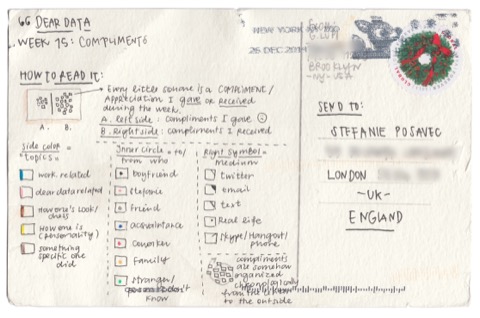 DEAR DATA
WEEK 15: COMPLIMENTS
HOW TO READ IT:
Every little square is a COMPLIMENT/
Appreciation I gave or received
during the week.
A. Left side: compliments I gave
B. Right side: compliments I received
A. B.
side color =
"topics"=
work related
dear data related
How one's look/
How one is
(personality)
something
specific one
did
Inner Circle = to/
from who
boyfriend
stefanie
friend
acquaintance
coworker
Family
stranger/
don't
know
Right symbol =
medium
twitter
email
text
Real life
Skype/Hangout/
phone
compliments
are somehow
organized
chronologically
from the
to the outside
NEW YORK
26 DEC 2014
BROOKLYN
-NY-USA
SEND TO:
STEFANIE POSAVEC
LONDON
-UK-
ENGLAND